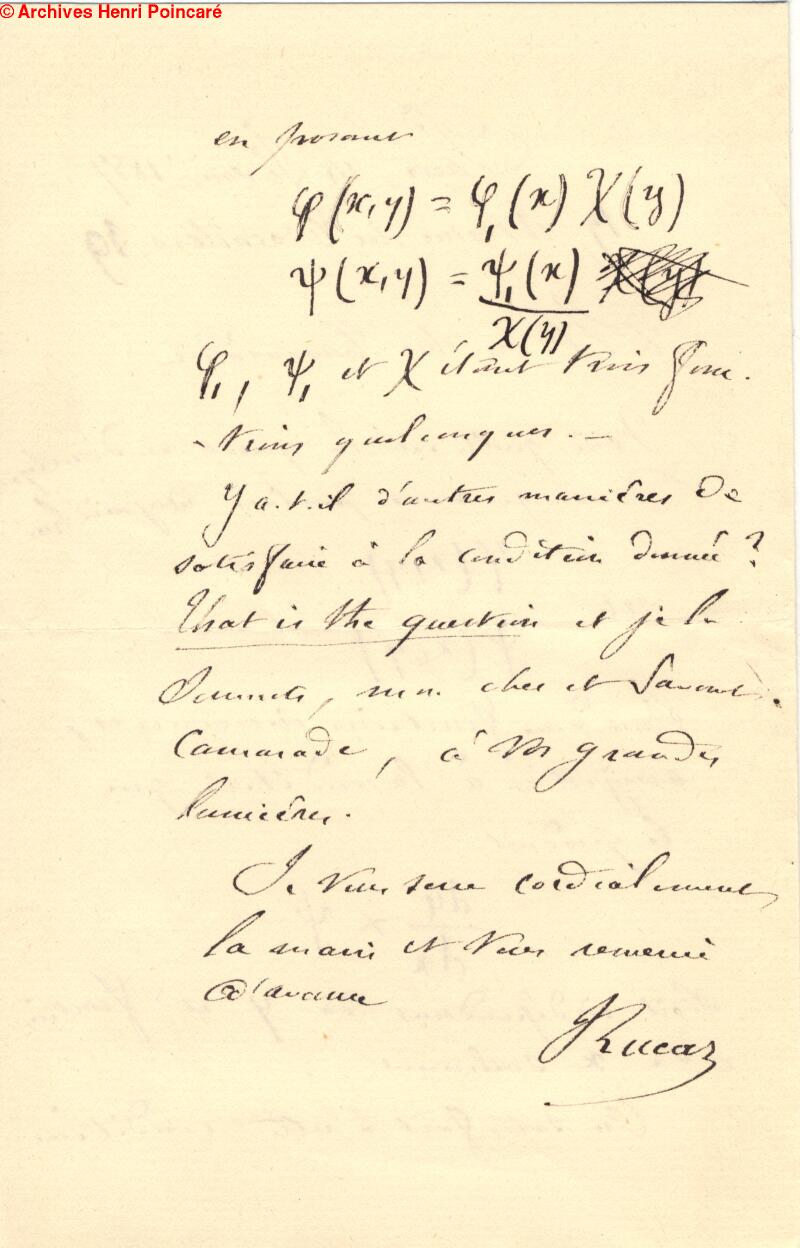 © Archives Henri Poincaré
en posant
φ(x,y) = φ₁(x) χ(y)
ψ(x,y) = ψ₁(x)
χ(y)
φ₁, ψ₁ et χ étant trois fonc-
-tions quelconques. —
Y a-t-il d'autres manières de
satisfaire à la condition donnée ?
That is the question et je la
soumets, mon cher et savant
Camarade, à vos grandes
lumières.
Je vous serre cordialement
la main et vous remercie
d'avance